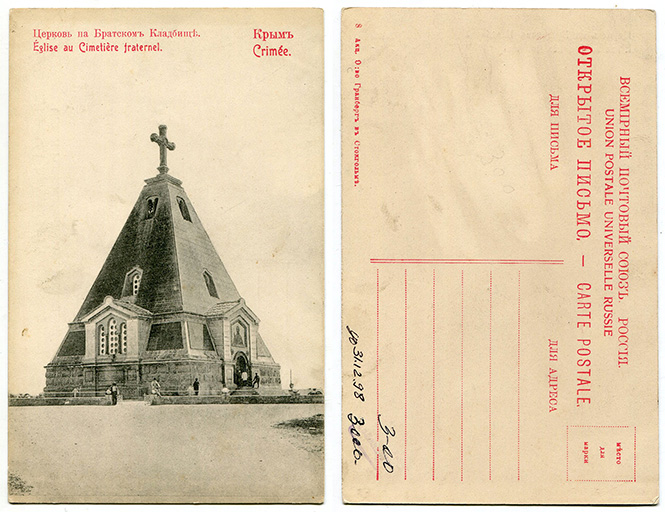 Церковь на Братскомъ Кладбищѣ.
Église au Cimetière fraternel.
Крымъ
Crimée.
ВСЕМІРНЫЙ ПОЧТОВЫЙ СОЮЗЪ. РОССІЯ.
UNION POSTALE UNIVERSELLE RUSSIE
ОТКРЫТОЕ ПИСЬМО. — CARTE POSTALE.
ДЛЯ ПИСЬМА
ДЛЯ АДРЕСА
мѣсто
для
марки
8 Акц. О-во Гранбергъ въ Стокгольмъ.
31.12.98
3-00